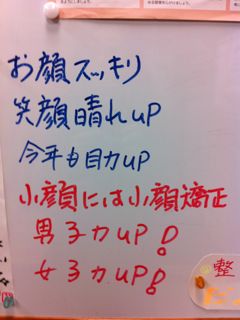 お顔スッキリ
笑顔晴れUP
今年も目力UP
小顔には小顔矯正
男子力UP!
女子力UP!
整